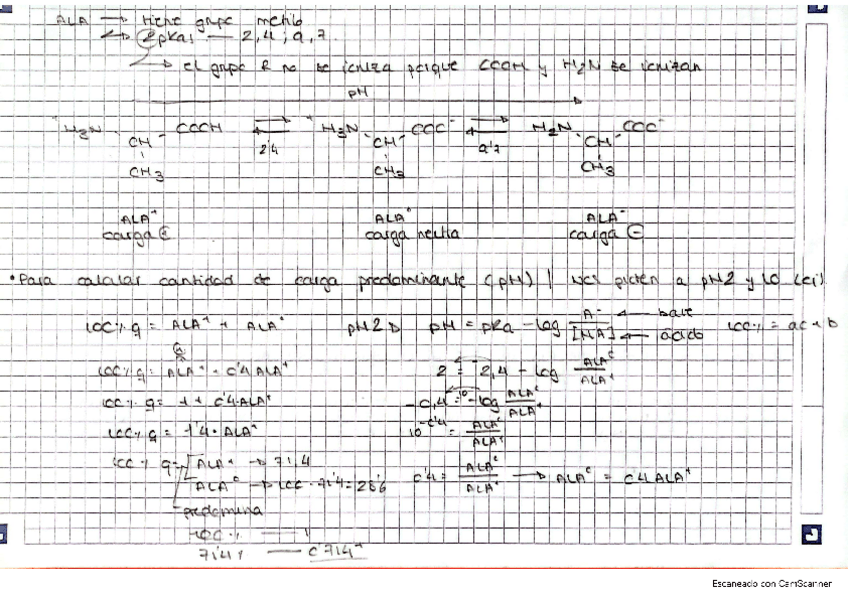 ALA → tiene grupo metilo
→ 2 pkas — 2,4 ; 9,7
→ el grupo R no se ioniza porque COOH y H2N se ionizan
pH
+H3N COOH ⇌ +H3N COO- ⇌ H2N COO-
CH 2'4 CH 9'7 CH
CH3 CH3 CH3
ALA+ ALA° ALA-
carga ⊕ carga neutra carga ⊖
• Para calcular cantidad de carga predominante (pH) | nos piden a pH2 y 10 (ej)
100% q = ALA+ + ALA° pH2 → pH = pKa - log A- ← base / [HA] ← ácido 100% = ac + b
100% q = ALA+ + 0'4 ALA+ 2 = 2,4 - log ALA° / ALA+
100% q = 1 + 0'4 · ALA+ -0,4 = -log ALA° / ALA+
100% q = 1'4 · ALA+ 10^-0'4 = ALA° / ALA+
100% q = ALA+ → 71,4
ALA° → 100 - 71'4 = 28'6 0'4 = ALA° / ALA+ → ALA° = 0'4 ALA+
predomina
100% — 1
71'4% — 0'714+
Escaneado con CamScanner